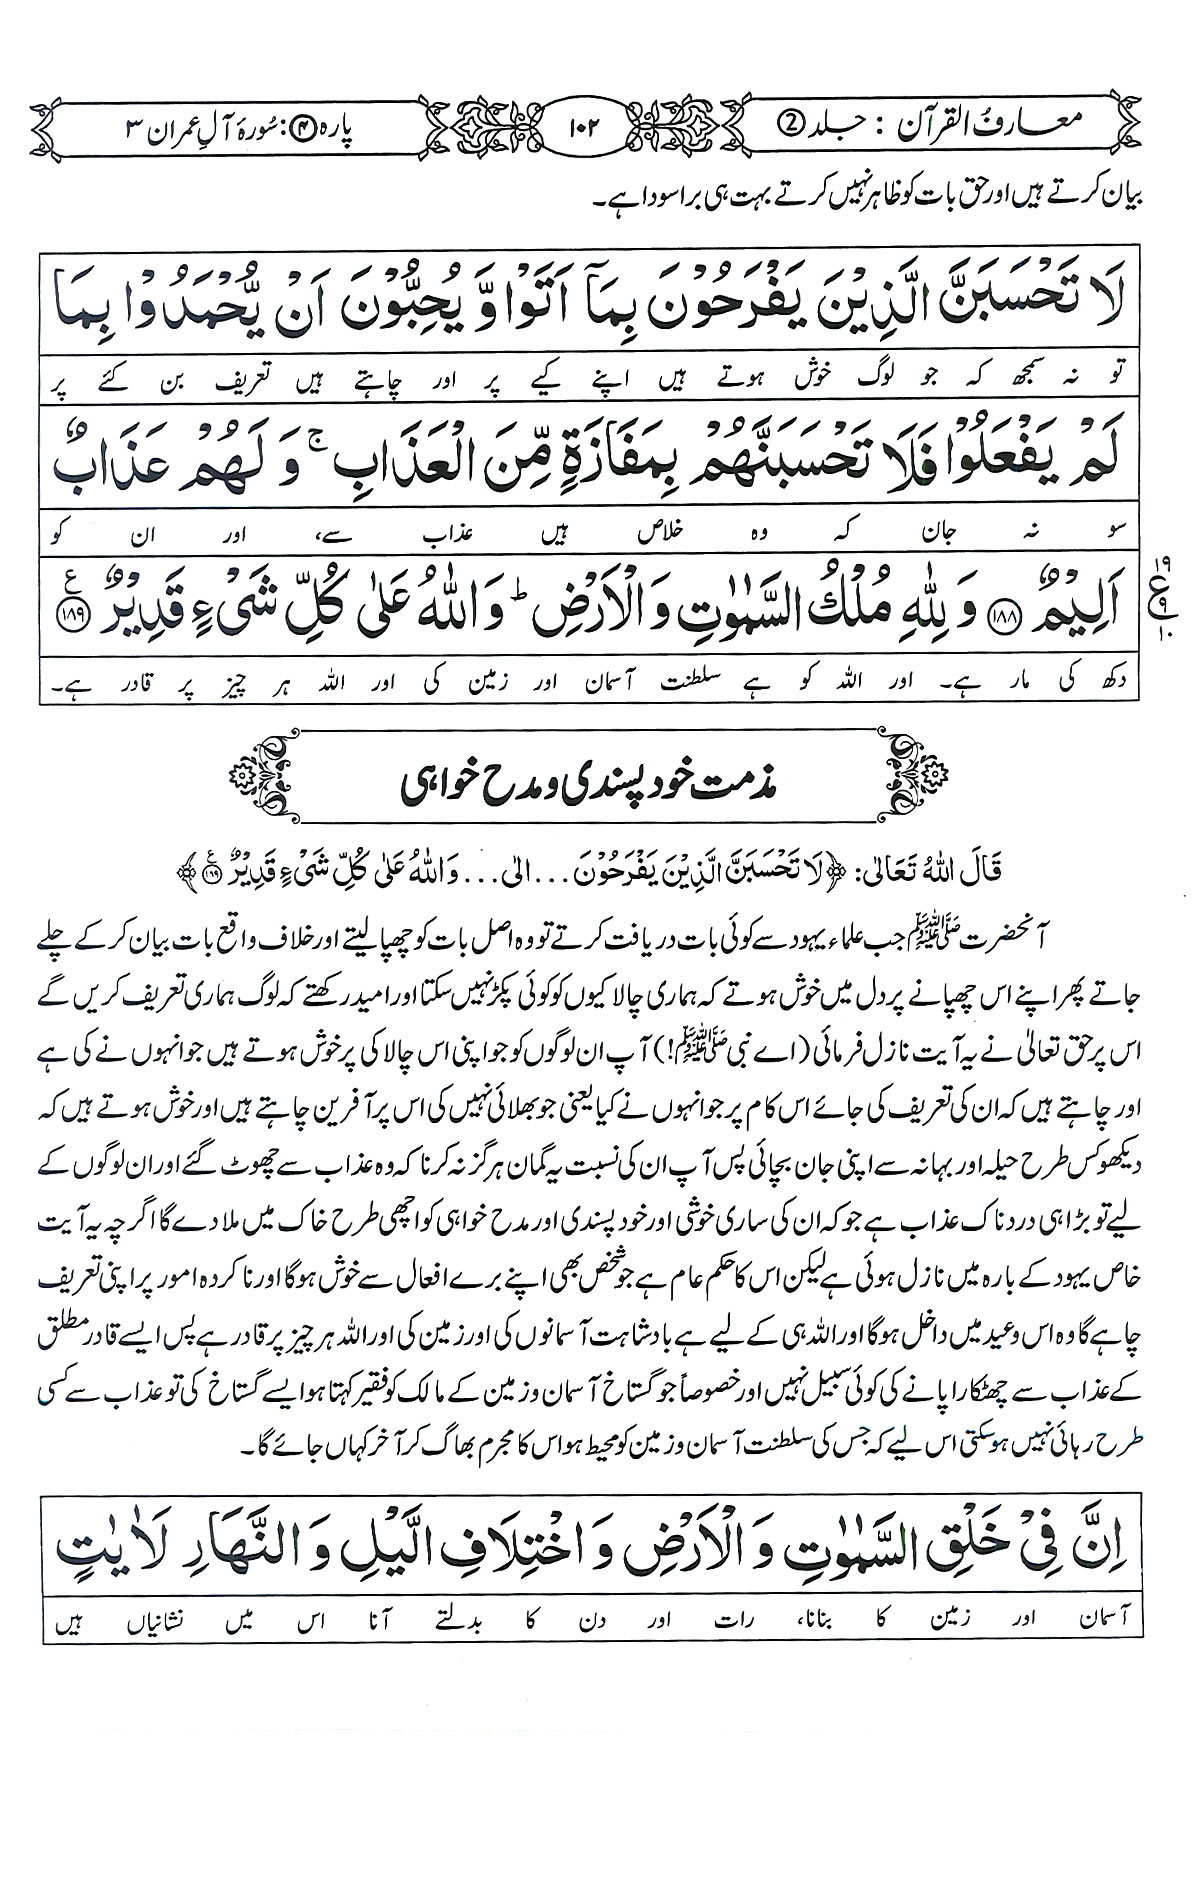 معارف القرآن : جلد ②
۱۰۲
پارہ ④: سُورۂ آلِ عمران ۳
بیان کرتے ہیں اور حق بات کو ظاہر نہیں کرتے بہت ہی برا سودا ہے۔
لَا تَحْسَبَنَّ الَّذِیْنَ یَفْرَحُوْنَ بِمَآ اَتَوْا وَّ یُحِبُّوْنَ اَنْ یُّحْمَدُوْا بِمَا
تو نہ سمجھ کہ جو لوگ خوش ہوتے ہیں اپنے کیے پر اور چاہتے ہیں تعریف بن کئے پر
لَمْ یَفْعَلُوْا فَلَا تَحْسَبَنَّهُمْ بِمَفَازَةٍ مِّنَ الْعَذَابِ ۚ وَ لَهُمْ عَذَابٌ
سو نہ جان کہ وہ خلاص ہیں عذاب سے، اور ان کو
اَلِیْمٌ ﴿۱۸۸﴾ وَ لِلّٰهِ مُلْكُ السَّمٰوٰتِ وَ الْاَرْضِ ؕ وَ اللّٰهُ عَلٰی كُلِّ شَیْءٍ قَدِیْرٌ ﴿۱۸۹﴾ ع
۱۹
ع ۹
۱۰
دکھ کی مار ہے۔ اور اللہ کو ہے سلطنت آسمان اور زمین کی اور اللہ ہر چیز پر قادر ہے۔
مذمت خود پسندی و مدح خواہی
قَالَ اللّٰهُ تَعَالٰی: ﴿لَا تَحْسَبَنَّ الَّذِیْنَ یَفْرَحُوْنَ ... الٰی ... وَاللّٰهُ عَلٰی كُلِّ شَیْءٍ قَدِیْرٌ ﴿۱۸۹﴾﴾
آنحضرت ﷺ جب علماء یہود سے کوئی بات دریافت کرتے تو وہ اصل بات کو چھپا لیتے اور خلاف واقع بات بیان کر کے چلے
جاتے پھر اپنے اس چھپانے پر دل میں خوش ہوتے کہ ہماری چالاکیوں کو کوئی پکڑ نہیں سکتا اور امید رکھتے کہ لوگ ہماری تعریف کریں گے
اس پر حق تعالیٰ نے یہ آیت نازل فرمائی (اے نبی ﷺ!) آپ ان لوگوں کو جو اپنی اس چالاکی پر خوش ہوتے ہیں جو انہوں نے کی ہے
اور چاہتے ہیں کہ ان کی تعریف کی جائے اس کام پر جو انہوں نے کیا یعنی جو بھلائی نہیں کی اس پر آفرین چاہتے ہیں اور خوش ہوتے ہیں کہ
دیکھو کس طرح حیلہ اور بہانہ سے اپنی جان بچائی پس آپ ان کی نسبت یہ گمان ہرگز نہ کرنا کہ وہ عذاب سے چھوٹ گئے اور ان لوگوں کے
لیے تو بڑا ہی دردناک عذاب ہے جو کہ ان کی ساری خوشی اور خود پسندی اور مدح خواہی کو اچھی طرح خاک میں ملا دے گا اگرچہ یہ آیت
خاص یہود کے بارہ میں نازل ہوئی ہے لیکن اس کا حکم عام ہے جو شخص بھی اپنے برے افعال سے خوش ہوگا اور ناکردہ امور پر اپنی تعریف
چاہے گا وہ اس وعید میں داخل ہوگا اور اللہ ہی کے لیے ہے بادشاہت آسمانوں کی اور زمین کی اور اللہ ہر چیز پر قادر ہے پس ایسے قادر مطلق
کے عذاب سے چھٹکارا پانے کی کوئی سبیل نہیں اور خصوصاً جو گستاخ آسمان و زمین کے مالک کو فقیر کہتا ہو ایسے گستاخ کی تو عذاب سے کسی
طرح رہائی نہیں ہوسکتی اس لیے کہ جس کی سلطنت آسمان و زمین کو محیط ہو اس کا مجرم بھاگ کر آخر کہاں جائے گا۔
اِنَّ فِیْ خَلْقِ السَّمٰوٰتِ وَ الْاَرْضِ وَ اخْتِلَافِ الَّیْلِ وَ النَّهَارِ لَاٰیٰتٍ
آسمان اور زمین کا بنانا، رات اور دن کا بدلتے آنا اس میں نشانیاں ہیں